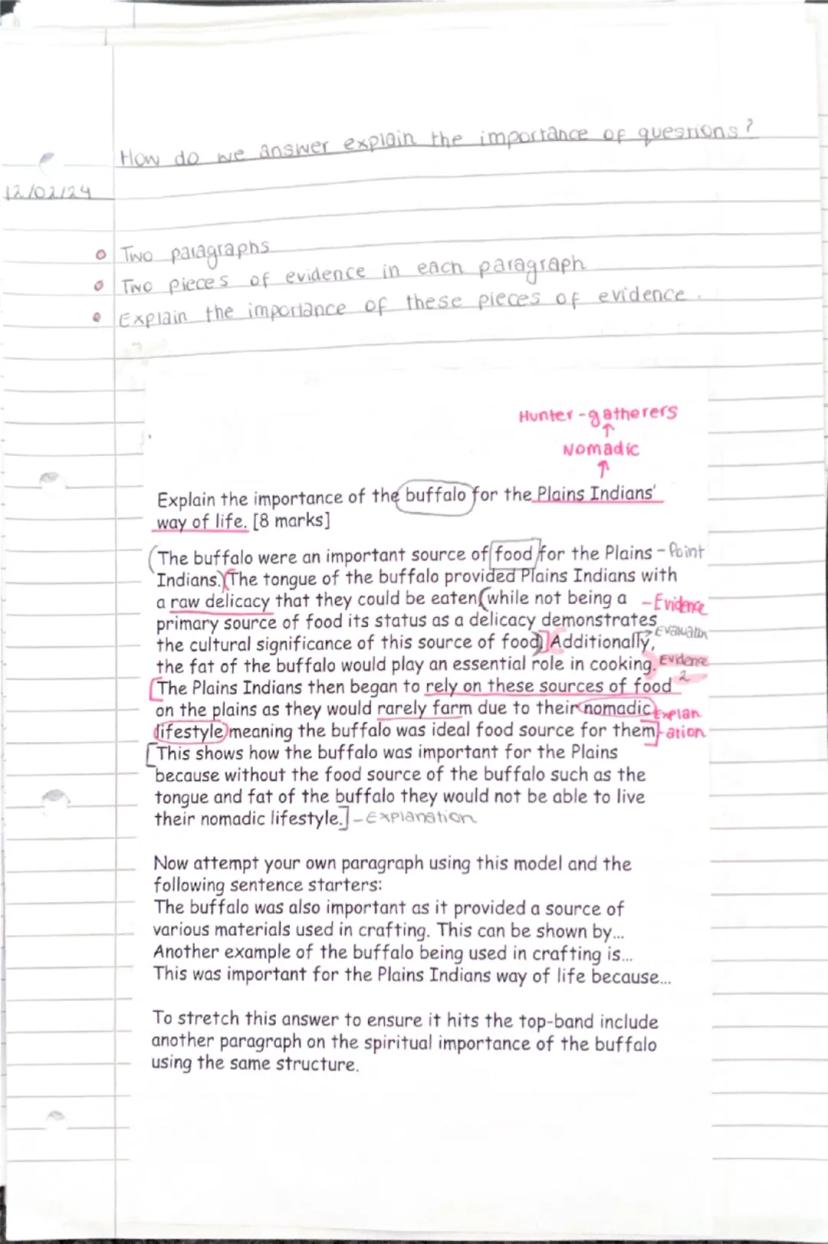 How do we answer explain the importance of questions?
12/02/24
Two paragraphs
Two pieces of evidence in each paragraph
Explain the importance of these pieces of evidence.
Hunter-gatherers
Nomadic
Explain the importance of the buffalo for the Plains Indians'
way of life. [8 marks]
The buffalo were an important source of food for the Plains - Point
Indians. The tongue of the buffalo provided Plains Indians with
a raw delicacy that they could be eaten while not being a - Evidence
primary source of food its status as a delicacy demonstrates
the cultural significance of this source of food. Additionally, Evaluation
the fat of the buffalo would play an essential role in cooking. Evidence 2
The Plains Indians then began to rely on these sources of food
on the plains as they would rarely farm due to their nomadic Explan
lifestyle meaning the buffalo was ideal food source for them -ation
This shows how the buffalo was important for the Plains
because without the food source of the buffalo such as the
tongue and fat of the buffalo they would not be able to live
their nomadic lifestyle. - Explanation
Now attempt your own paragraph using this model and the
following sentence starters:
The buffalo was also important as it provided a source of
various materials used in crafting. This can be shown by...
Another example of the buffalo being used in crafting is...
This was important for the Plains Indians way of life because...
To stretch this answer to ensure it hits the top-band include
another paragraph on the spiritual importance of the buffalo
using the same structure.